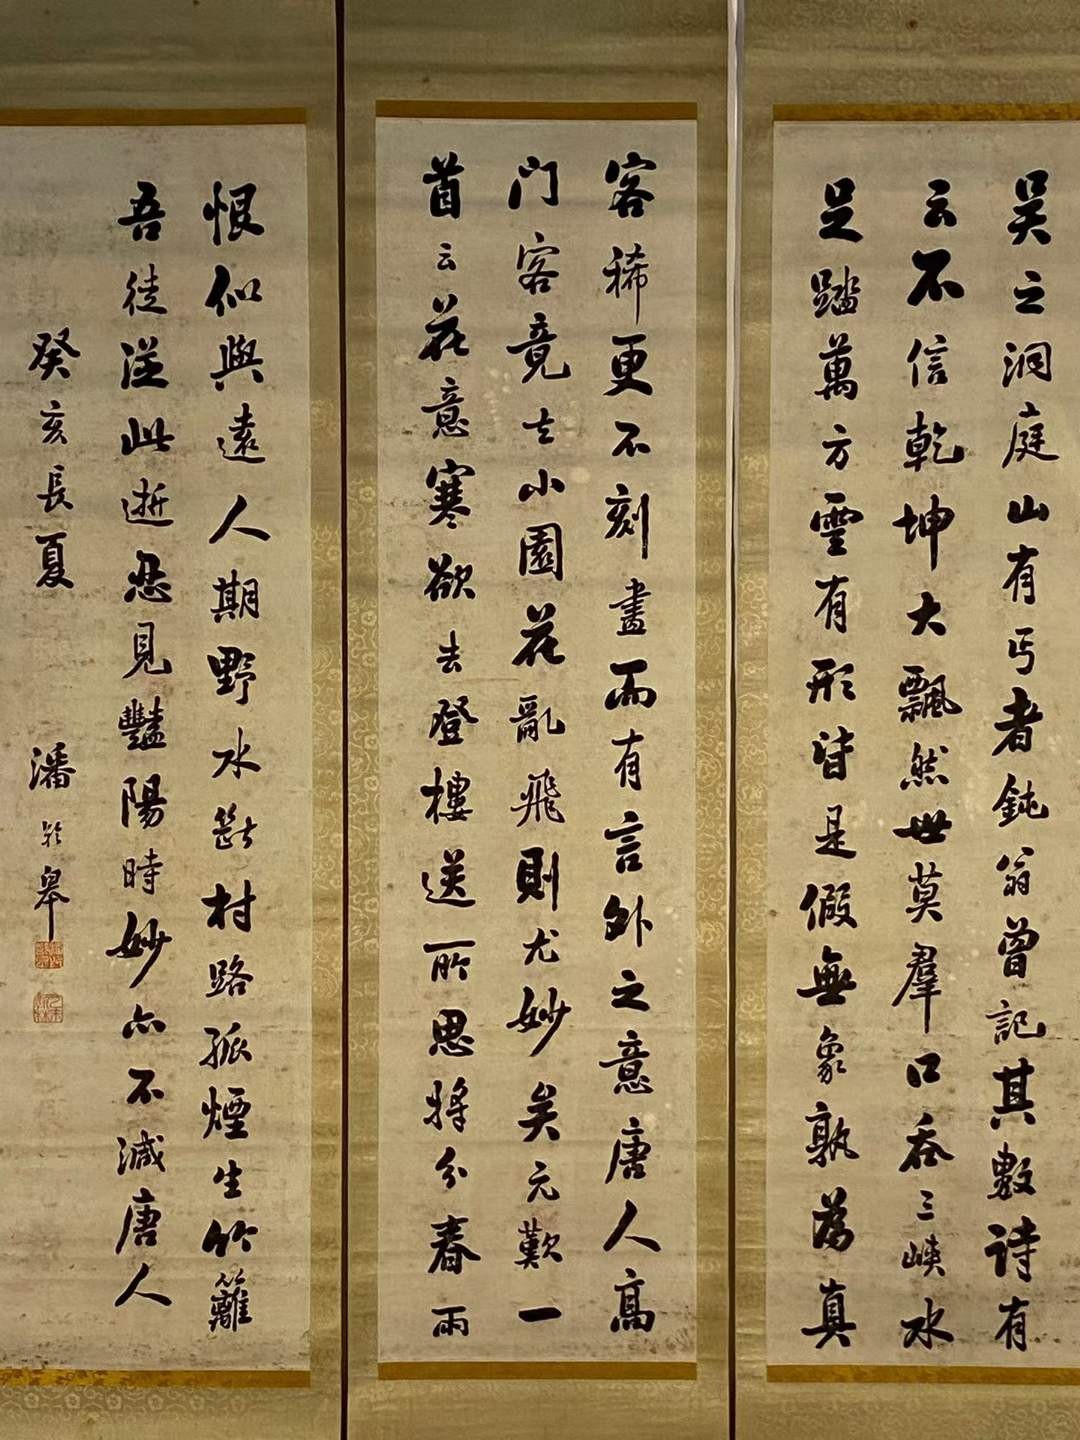 吴之洞庭山有丐者鈍翁曾記其數诗有
云不信乾坤大飄然世莫羣口吞三峽水
足踏萬方雲有形皆是假無象孰為真
客稀更不刻畫而有言外之意唐人高
门客竟去小園花亂飛則尤妙矣元歎一
首云花意寒欲去登樓送所思將分春雨
恨似與遠人期野水斷村路孤煙生竹籬
吾徒從此逝忍見豔陽時妙亦不減唐人
癸亥長夏 潘齡皋